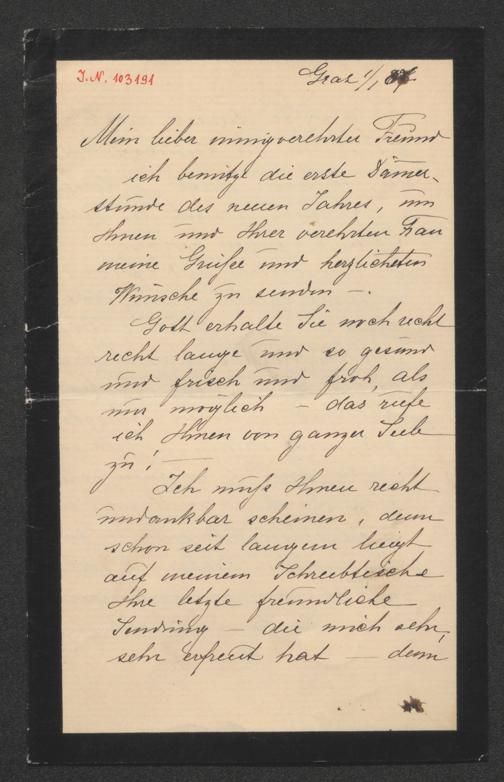 J.N. 103191
Graz 1/1 87
Mein lieber innigverehrter Freund
ich benütze die erste Dämer-
stunde des neuen Jahres, um
Ihnen und Ihrer verehrten Frau
meine Grüße und herzlichsten
Wünsche zu senden –.
Gott erhalte Sie noch recht
recht lange und so gesund
und frisch und froh, als
nur möglich – das rufe
ich Ihnen von ganzer Seele
zu! —
Ich muß Ihnen recht
undankbar scheinen, denn
schon seit langem liegt
auf meinem Schreibtische
Ihre letzte freundliche
Sendung – die mich sehr,
sehr erfreut hat – denn